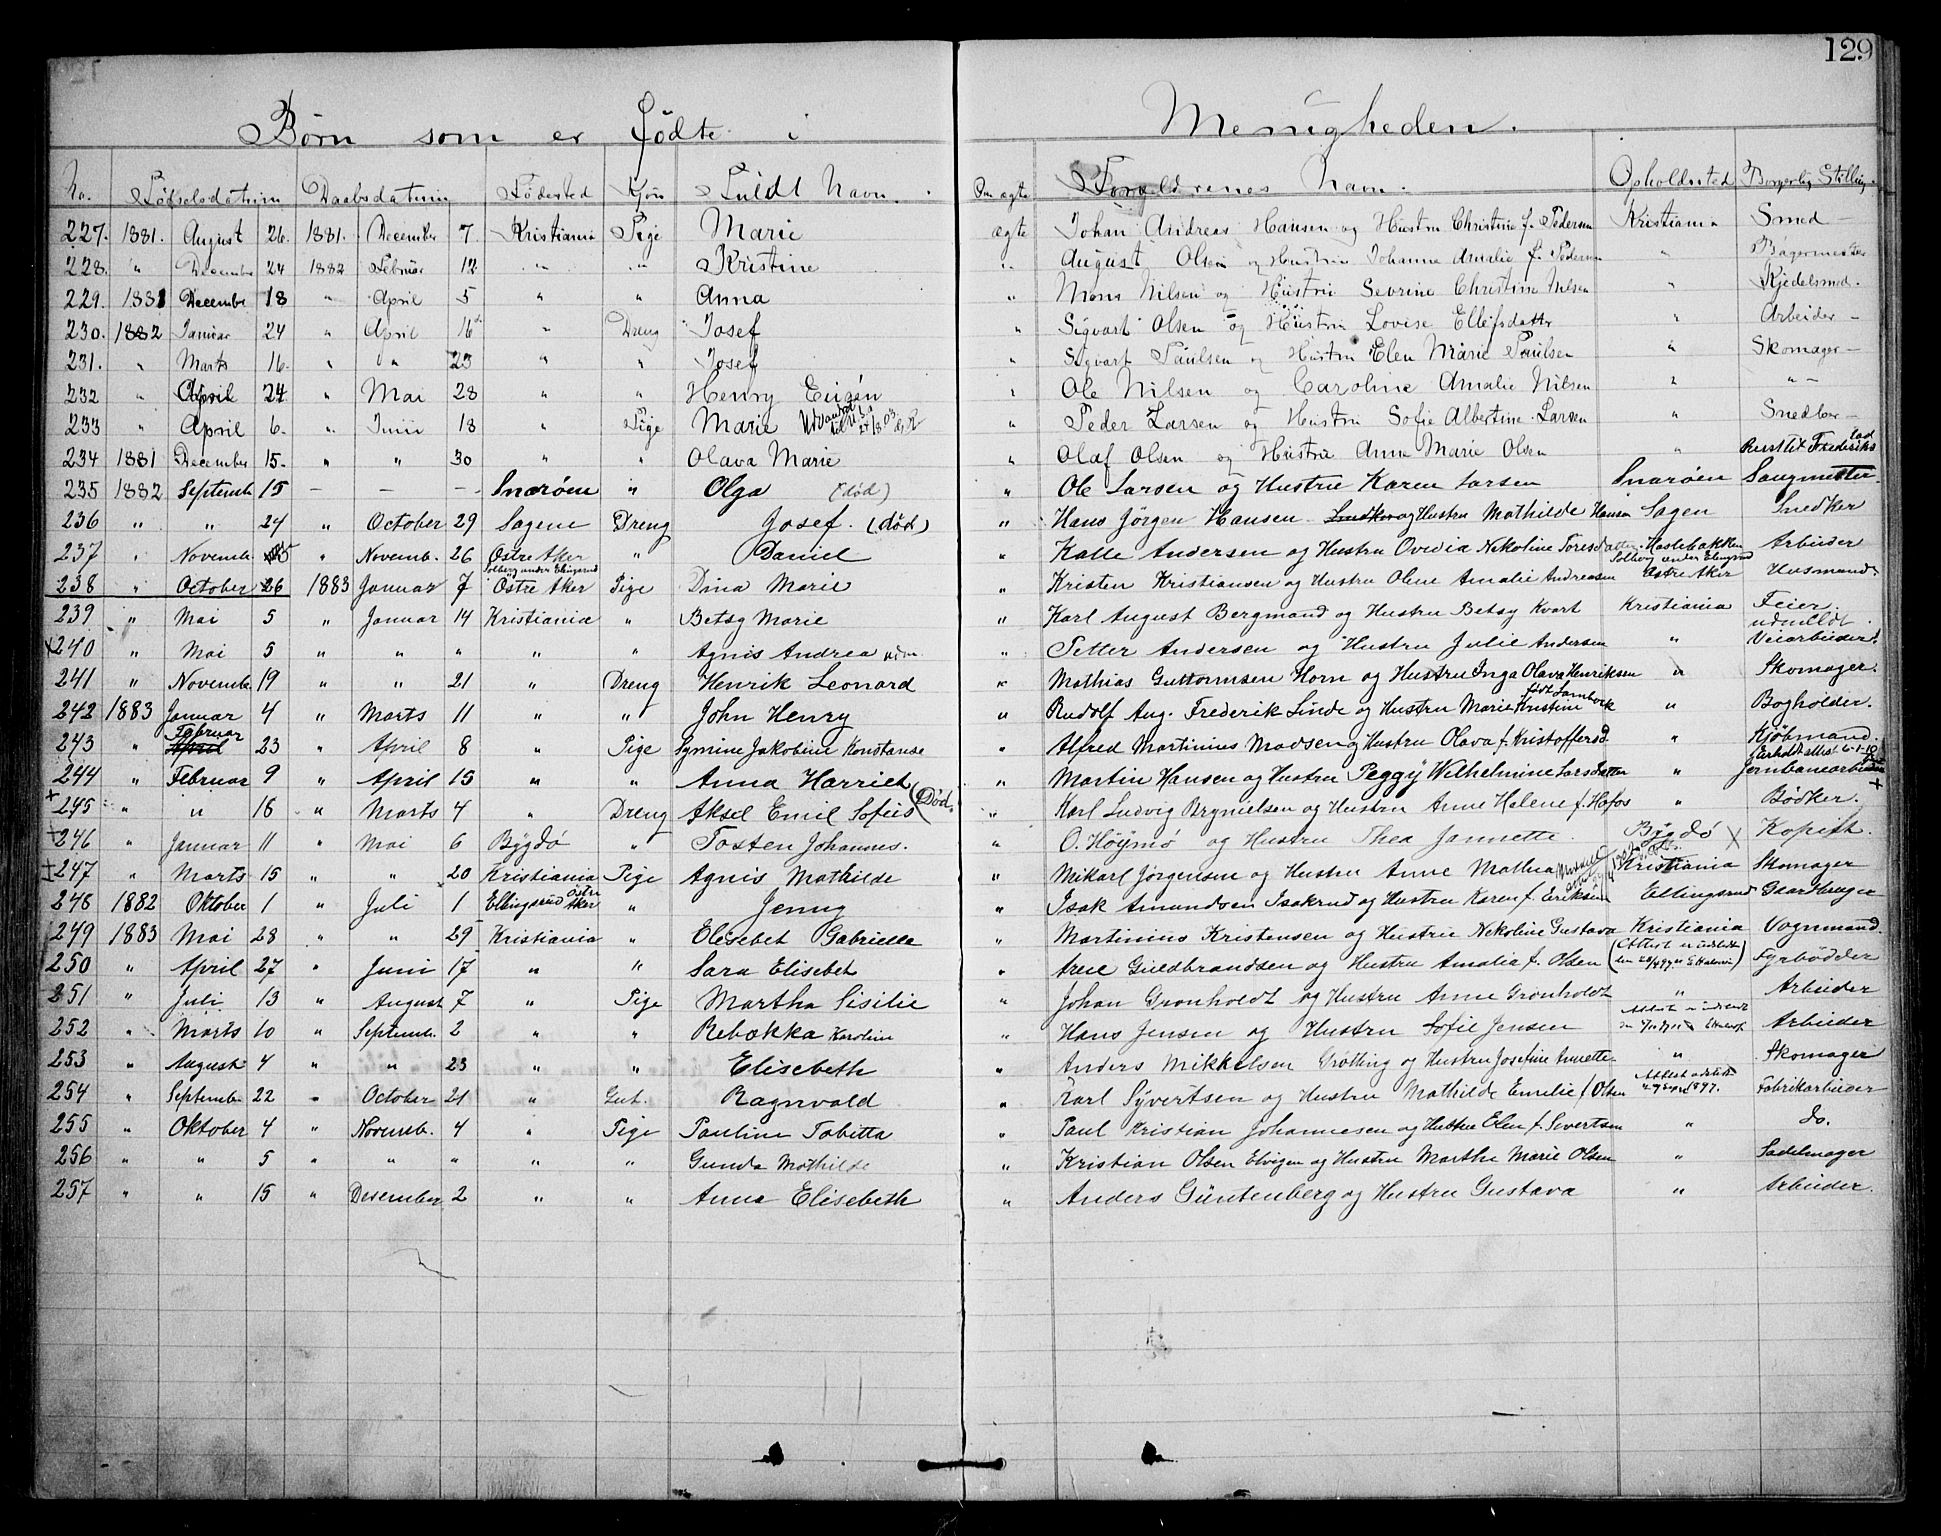 129
Børn som er fødte i Menigheden.
No. Fødselsdatum Daabsdatum Fødested Kjøn Fuldt Navn. Om ægte Forældrenes Navn. Opholdssted Borgerlig Stilling.
227. 1881. August 26. 1881. December 7. Kristiania Pige Marie ægte Johan Andreas Hansen og Hustru Christine f. Pedersen Kristiania Smed —
228. " December 24 1882 Februar 12 " " Kristine " August Olsen og Hustru Johanne Amalie f. Pedersen " Bagermester
229. 1881 December 18 " April 5 " " Anna " Mons Nilsen og Hustru Sevrine Christine Nilsen " Kjedelsmed.
230. 1882 Januar 24 " April 16 " Dreng Josef " Sigvart Olsen og Hustru Lovise Ellefsdatter " Arbeider —
231. " Marts 16. " " 23 " " Josef " Sigvart Paulsen og Hustru Elen Marie Paulsen " Skomager —
232 " April 24 " Mai 28 " " Henry Eugén " Ole Nilsen og Caroline Amalie Nilsen " " —
233 " April 6. " Juni 18 " Pige Marie " Peder Larsen og Hustru Sofie Albertine Larsen " Snedker —
234 1881 December 15. " " 30 " " Olava Marie " Olaf Olsen og Hustru Anne Marie Olsen " Fredriksstad
235 1882 Septemb. 15 — — — Snarøen " Olga (død) " Ole Larsen og Hustru Karen Larsen Snarøen Saugmester.
236 " " 24 " October 29 Sagene Dreng Josef. (død) " Hans Jörgen Hansen Snedker og Hustru Mathilde Hansen Sagen Snedker
237 " Novemb. 5 " Novemb. 26 Östre Aker " Daniel " Kalle Andersen og Hustru Ovedia Nekoline Toresdatter Haslebakken Arbeider
238 " October 26 1883 Januar 7 Solberg under Ellingsrud Östre Aker Pige Dina Marie " Kristen Kristiansen og Hustru Oline Amalie Andreasen Solberg under Ellingsrud Östre Aker Husmand.
239 " Mai 5 " Januar 14 Kristiania " Betsy Marie " Karl August Bergmand og Hustru Betsy Kvart Kristiania Feier. udmeldt.
x240 " Mai 5 " " " " " Agnis Andrea " Petter Andersen og Hustru Julie Andersen " Veiarbeider.
241 " Novemb. 19 " " 21 " Dreng Henrik Leonard " Mathias Guttormsen Horn og Hustru Inga Olava Henriksen " Skomager.
242 1883 Januar 4 " Marts 11 " " John Henry " Rudolf Aug. Frederik Linde og Hustru Marie Kristine " Bogholder.
243 " April Februar 23 " April 8 " Pige Symine Jakobine Konstanse " Alfred Martinius Madsen og Hustru Olava f. Kristoffersd. " Kjöbmand.
244 " Februar 9 " April 15 " " Anna Harriet " Martin Hansen og Hustru Peggy Wilhelmine Larsdatter " Jernbanearbeider
+245 " " 18 " Marts 4 " Dreng Aksel Emil Sofus (Död.) " Karl Ludvig Brynielsen og Hustru Anne Helene f. Hofos " Bödker.
+246 " Januar 11 " Mai 6 Bygdö " Tosten Johannes. " O. Höymö og Hustru Thea Jannette. Bygdö X Kopist.
+247 " Marts 15 " " 20 Kristiania Pige Agnis Mathilde " Mikarl Jörgensen og Hustru Anne Mathea Kristiania Skomager
248 1882 Oktober 1 " Juli 1 Ellingsrud Östre Aker " Jenny " Isak Amundsen Isakrud og Hustru Karen f. Eriksen Ellingsrud Gaardbruger
249 1883 Mai 28 " " 29 Kristiania " Elisebet Gabriella " Martinius Kristensen og Hustru Nekoline Gustava Kristiania Vognmand.
250 " April 27 " Juni 17 " " Sara Elisebet " Arne Guldbrandsen og Hustru Amalia f. Olsen Fyrbödder
251 " Juli 13 " August 7 " Pige Martha Sisilie " Johan Gronholdt og Hustru Anne Gronholdt " Arbeider
252 " Marts 10 " Septemb. 2 " " Rebekka Karoline " Hans Jensen og Hustru Sofie Jensen Arbeider
253 " August 4 " " 23 " " Elisebeth " Anders Mikkelsen Grötting og Hustru Josefine Annette " Skomager
254 " Septemb. 22 " October 21 " Gut. Ragnvald " Karl Syvertsen og Hustru Mathilde Emelie f. Olsen Fabrikarbeider
255 " Oktober 4 " Novemb. 4 " Pige Pauline Tabitta " Paul Kristian Johannesen og Hustru Elen f. Sivertsen " do.
256 " " 5 " " " " " Gunda Mathilde " Kristian Olsen Elvigen og Hustru Marthe Marie Olsen " Sadelmager
257 " " 15 " Desember 2 " " Anna Elisebeth " Anders Güntenberg og Hustru Gustava " Arbeider.